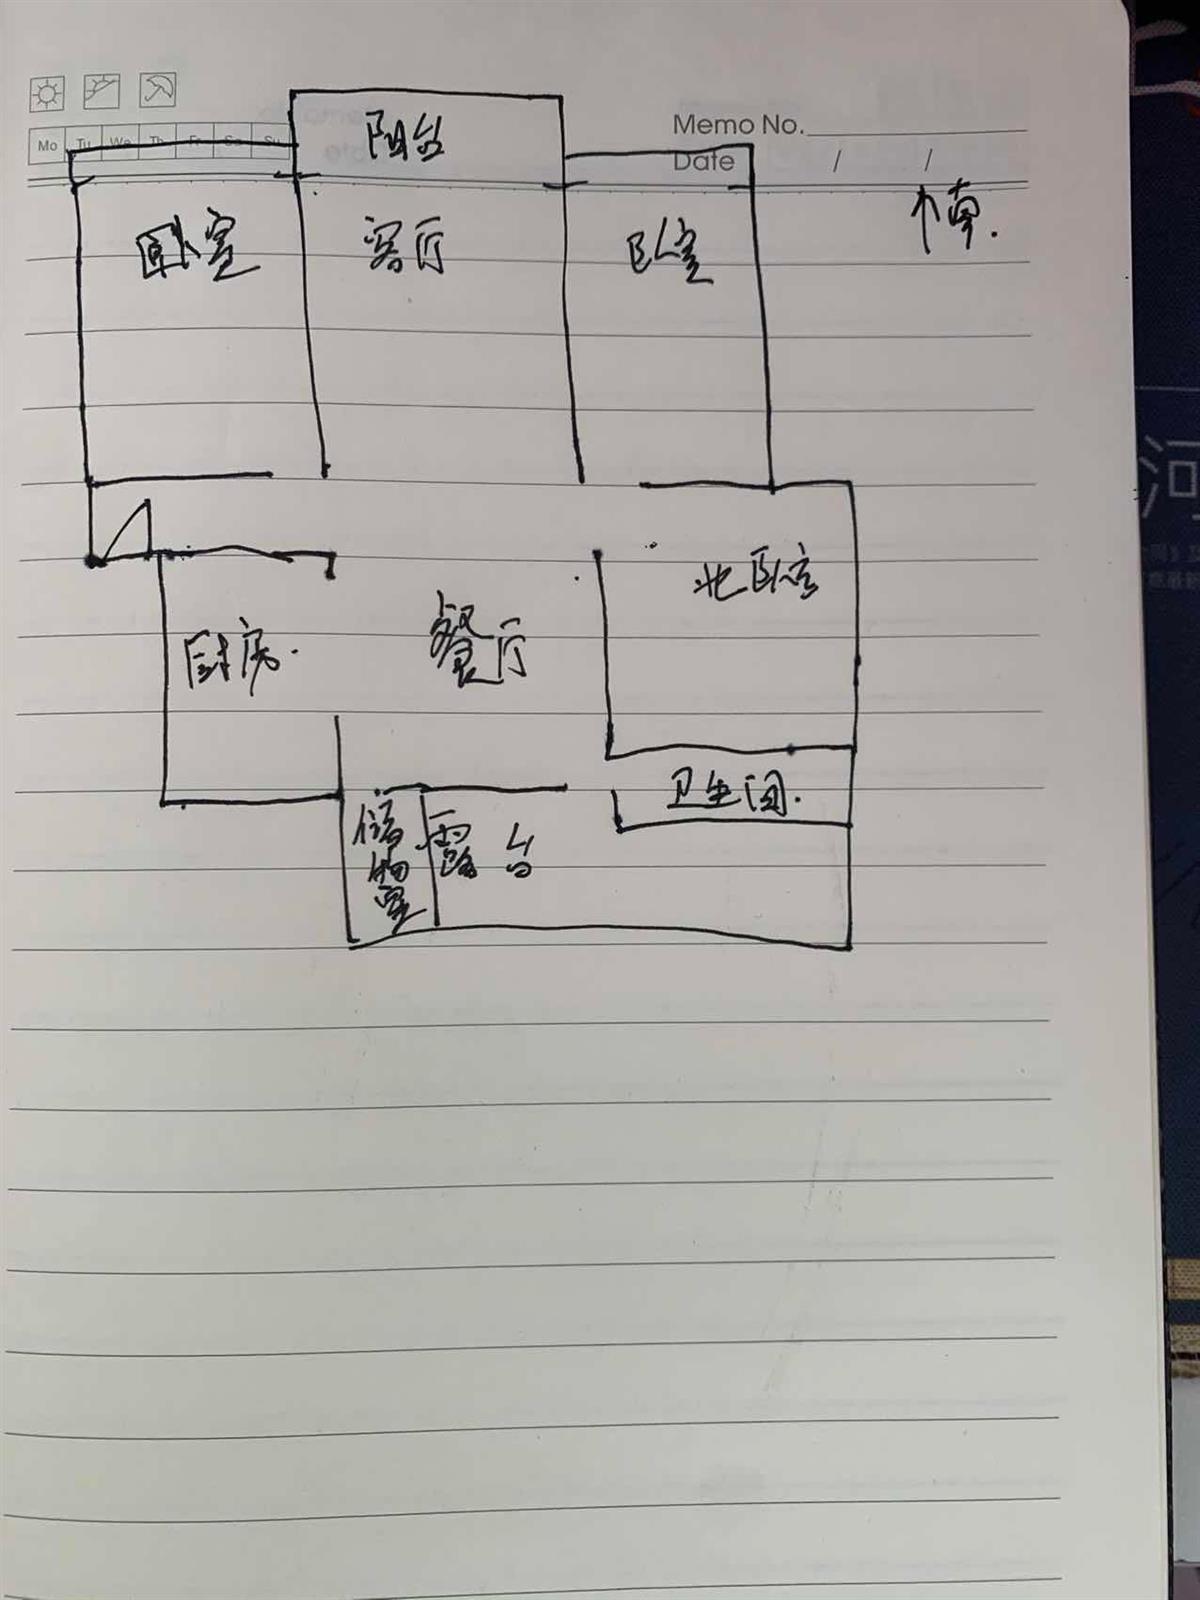 阳台
Memo No.
Mo Tu We Th Fr Sa Su
Date / /
卧室 客厅 卧室
↑南.
河
北卧室
厨房. 餐厅
卫生间.
储物室
露台